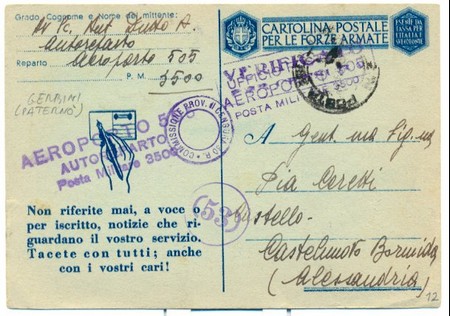 Grado Cognome e Nome del mittente:
Autoreparto
Reparto Aeroporto 505
P. M. 3500
GERBINI
(PATERNÒ)
CARTOLINA POSTALE
PER LE FORZE ARMATE
VERIFICATO
UFFICIO
AEROPORTO 505
POSTA MILITARE 3500
AEROPORTO 505
AUTOREPARTO
Posta Militare 3500
COMMISSIONE PROV.
53
Non riferite mai, a voce o
per iscritto, notizie che ri-
guardano il vostro servizio.
Tacete con tutti; anche
con i vostri cari!
A Gent.ma Sig.na
Pia Ceretti
Castelnuovo Bormida
(Alessandria)
12